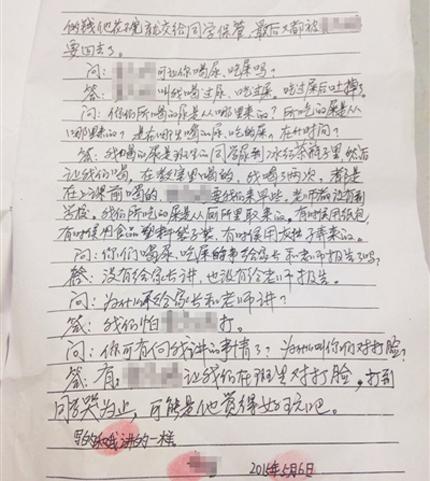 的钱他花不完就交给同学保管，最后大都被
要回去了。
问：可让你喝尿、吃屎吗？
答：叫我喝过尿、吃过屎。吃过屎后吐掉了
问：你们所喝的尿是从哪里来的？所吃的屎是从
哪里来的？是在哪里喝的尿、吃的屎。在什时间？
答：我喝的尿是班里的同学尿到冰红茶瓶子里，然后
让我们喝，在教室里喝的，我喝了两次，都是
在上课前喝的，要我们来早些，老师都没有到
学校。我们所吃的屎是从厕所里取来的。有时候用纸包，
有时候用食品塑料袋子装，有时候用灰挑子弄来的。
问：你们喝尿、吃屎的事给家长和老师报告了吗？
答：没有给家长讲，也没有给老师报告。
问：为什么不给家长和老师讲？
答：我们怕打。
问：你可有何我讲的事情了？为什么叫你们对打脸？
答：有。让我们在班里对打脸，打到
同学哭为止，可能是他觉得好玩吧。
写的和我讲的一样
2015年5月6日